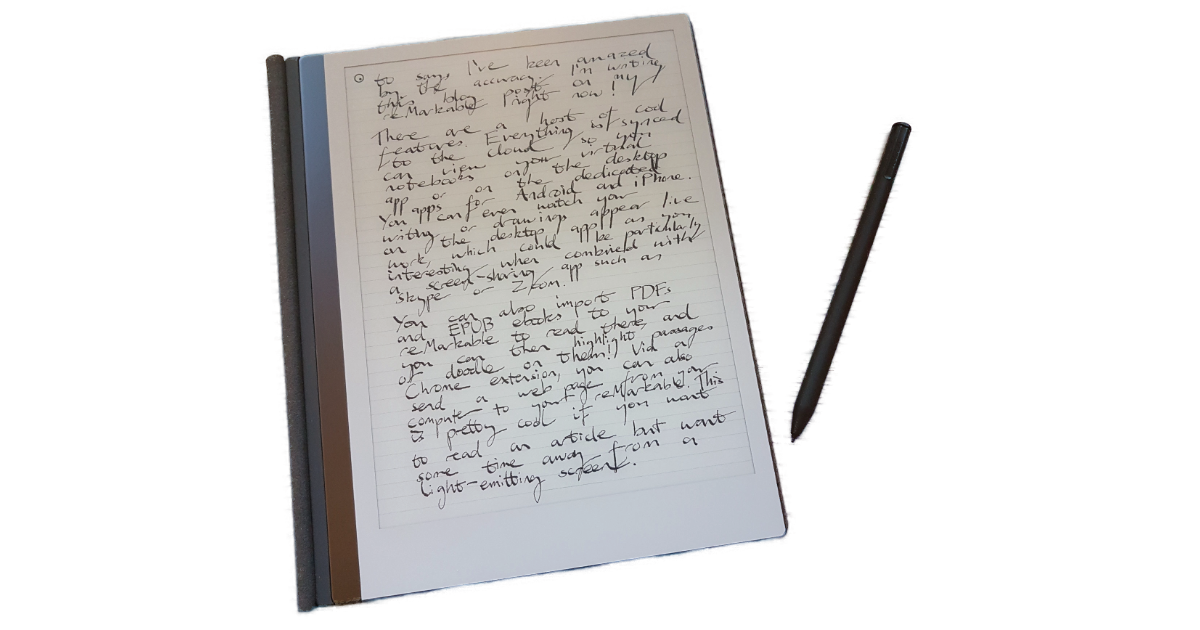 to say I've been amazed
by the accuracy. I'm writing
this blog post on my
reMarkable right now!
There are a host of cool
features. Everything is synced
to the cloud so you
can view your virtual
notebooks on the desktop
app or on the dedicated
apps for Android and iPhone.
You can even watch your
writing or drawings appear live
on the desktop app as you
work, which could be particularly
interesting when combined with
a screen-sharing app such as
Skype or Zoom.
You can also import PDFs
and EPUB ebooks to your
reMarkable to read there, and
you can then highlight passages
or doodle on them! Via a
Chrome extension, you can also
send a web page from your
computer to your reMarkable. This
is pretty cool if you want
to read an article but want
some time away from a
light-emitting screen.